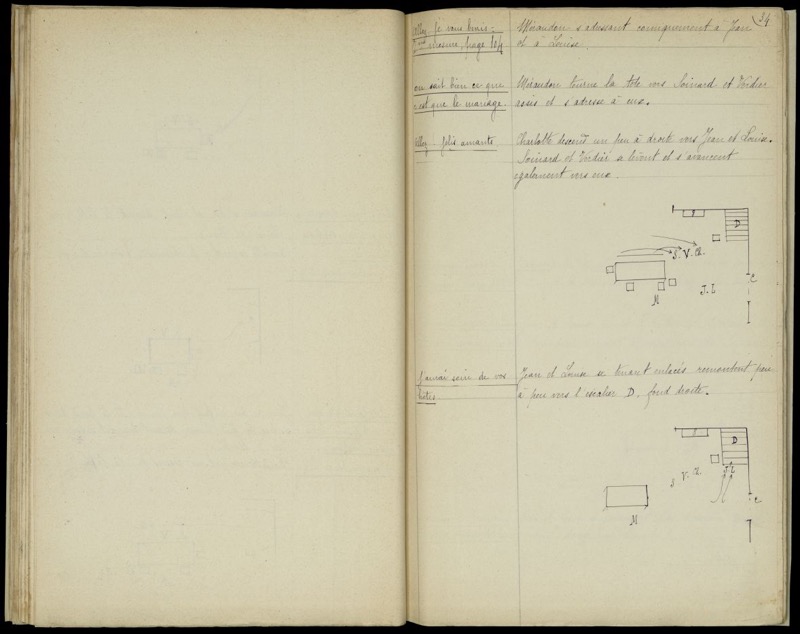 34
allez je vous bénis.
mesure page 104
Mérandon s'adressant comiquement à Jean
et à Louise.
on sait bien ce que
c'est que le mariage.
Mérandon tourne la tête vers Soinard et Verdier
assis et s'adresse à eux.
allez
amants
Charlotte descend un peu à droite vers Jean et Louise.
Soinard et Verdier se lèvent et s'avancent
également vers eux.
D
S. V. Ch.
C
J. L
M
J'aurai soin de vos
bêtes
Jean et Louise se tenant enlacés remontent peu
à peu vers l'escalier D. fond droite.
D
S V. Ch.
J. L
C
M